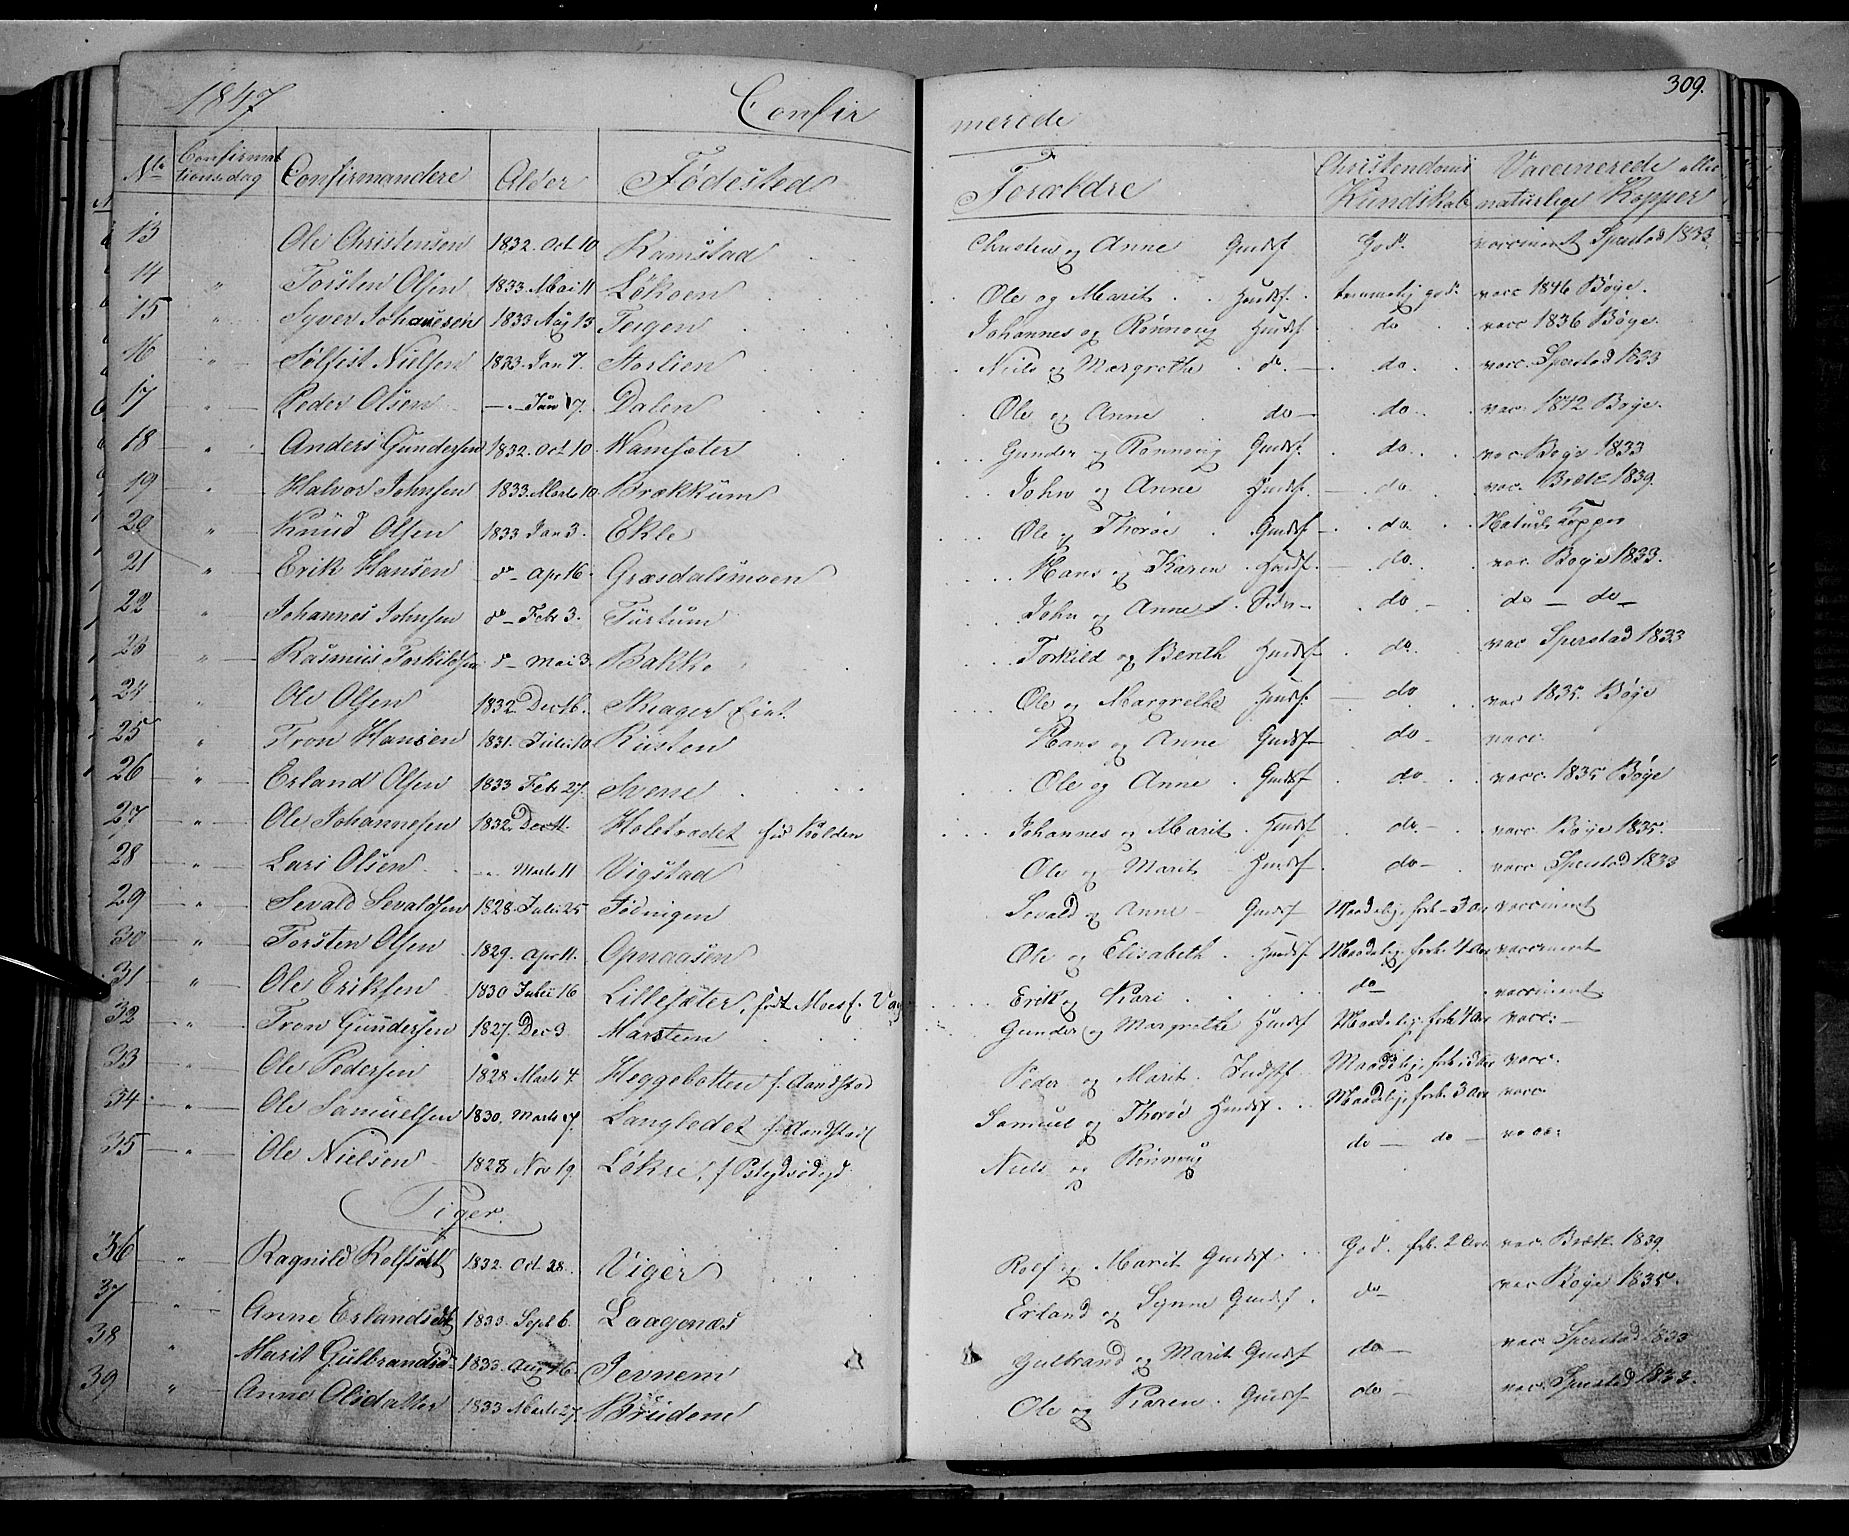 309.
1847 Confirmerede
No Confirmationsdag Confirmandere Alder Fødested Forældre Christendoms Kundskab Vaccinerede eller naturlige Kopper
13 Ole Christensen 1832. Oct. 10 Ramstad Christen og Anne Gmdsf God. vaccineret Sperstad 1833.
14 " Torsten Olsen 1833. Mai 11 Løkoen Ole og Marit Hmdsf. temmelig god. vacc 1846 Bøye.
15 " Syver Johanesen 1833. Aug 15 Teigen Johannes og Rønnoug Hmdsf. do vacc 1836 Bøye.
16 " Sølfest Nielsen 1833. Jan 7. Storlien Niels og Margrethe do do vacc. Sperstad 1833
17 " Peder Olsen — Jan 7. Dalen Ole og Anne do do vac. 1842 Bøye.
18 " Anders Gundersen 1832. Oct 10. Wamsæter Gunder og Rønnoug Gmdsf. do vac. Bøye 1833
19 " Halvor Johnsen 1833. Marts 10. Brækkum John og Anne Hmdsf. do vac. Bræk 1839.
20 " Knud Olsen 1833 Jan 3. Ekle Ole og Thorøe Gmdsf. do Naturl. Kopper
21 " Erik Hansen do Apr 16. Græsdalsmoen Hans og Karen Hmdsf. do vac. Bøye 1833.
22 " Johannes Johnsen do Febr 3. Furtum John og Anne do do — do
23 " Rasmus Torkildsen do Mai 3. Bakke Torkild og Berith Hmdsf do vac Sperstad 1833
24 Ole Olsen 1832. Dec 16. Ole og Margrethe Hmdsf. do vac 1835. Bøye
25 " Tron Hansen 1831. Julii 10 Rusten Hans og Anne Gmdsf do vacc.
26 " Erland Olsen 1833 Febr 27. Svene Ole og Anne Gmdsf do vacc. 1835 Bøye
27 " Ole Johannesen 1832. Dec 11. Holetrædet Johannes og Marit Hmdsf do vacc. Bøye 1835.
28 " Lars Olsen — Marts 11 Vigstad Ole og Marit Hmdsf do vacc Sperstad 1833
29 " Sevald Sevaldsen 1828. Julii 25 Fødnigen Sevald og Anne Gmdsf Maadelig, forb. 3 Aar vaccineret
30 " Torsten Olsen 1829. Apr 11. Opnaasen Ole og Elisabeth Hmdsf. Maadelig, forb. 4 Aar vaccineret
31 " Ole Eriksen 1830 Julii 16 Lillesæter, født Erik og Kari do vaccineret
32 " Tron Gundersen 1827. Dec 3 Marstein Gunder og Margrethe Hmdsf Maadelig, forb. 4 Aar vacc.
33 " Ole Pedersen 1828 Marts 4. Heggebotten f. Aandstad Peder og Marit Maadelig, forb. 3 Aar vacc.
34 " Ole Samuelsen 1830. Marts 17. Langledet f. Aandstad Samuel og Thorøe Hmdsf. Maadelig, forb. 3 Aar vacc
35 " Ole Nielsen 1828 Nov 19. Løkre, Niels og Rønnoug do — do — vacc.
Piger.
36 " Ragnild Rolfsdtt 1832. Oct. 28. Viger Rolf og Marit Gmdsf God. forb. 2 Aar vac. Bræk. 1839.
37 " Anne Erlandsdtt 1833. Sept 6. Laagenæs Erland og Synne Gmdsf do vac Bøye 1835.
38 " Marit Gulbrandsd. 1833. Aug 16 Jevnem Gulbrand og Marit Gmdsf do vac. Sperstad 1833
39 " Anne Olsdatter 1833 Marts 27 Brudene Ole og Karen Gmdsf do vac. Sperstad 1833.